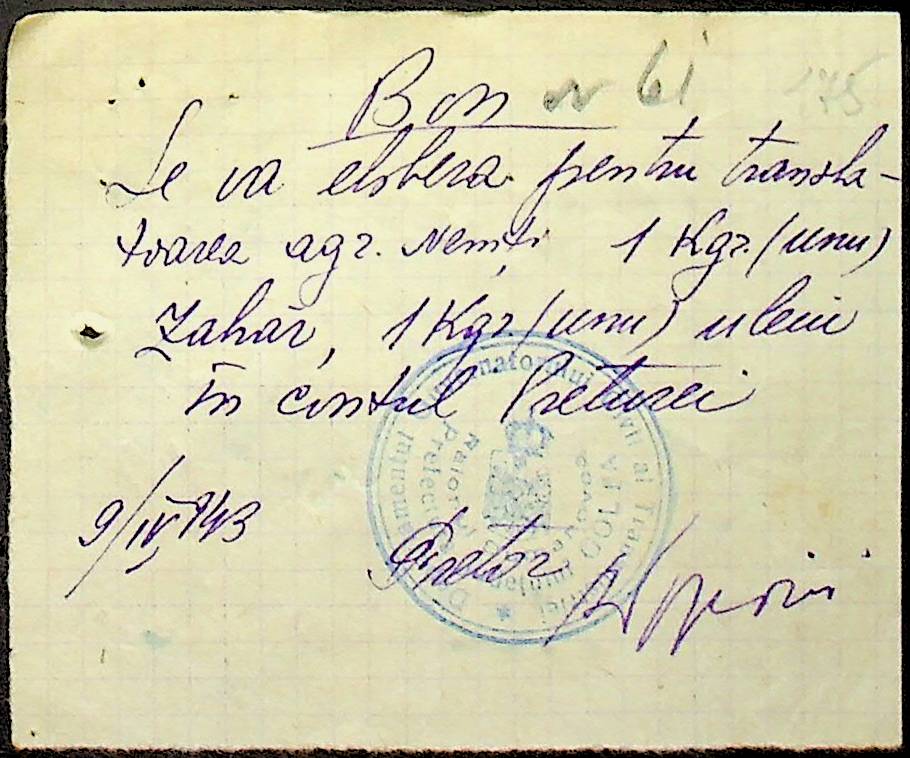 Bon nr 61
175
Se va elibera pentru transla-
toarea agr. Nemți 1 Kgr. (unu)
Zahăr, 1 Kgr (unu) uleiu
în contul Preturei
9/IV 943
Pretor
Guvernatorului Civil al
GOLTA
Raion